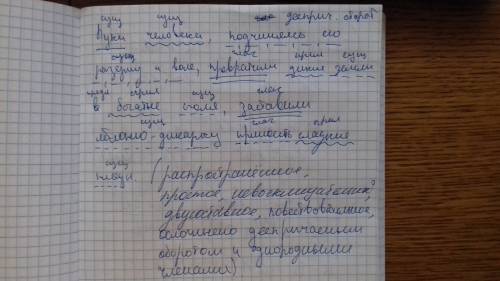 сущ сущ дееприч. оборот
Руки человека, подчиняясь его
сущ глаг прил сущ
разуму и воле, превратили дикие земли
предл прил сущ глаг
в богатые поля, заставили
сущ глаг прил
яблоню-дикарку приность сладкие
сущ
плоды. (распространённое,
простое, невосклицательн,
двусоставное, повествовательное,
осложнено деепричастным
оборотом и однородными
членами)